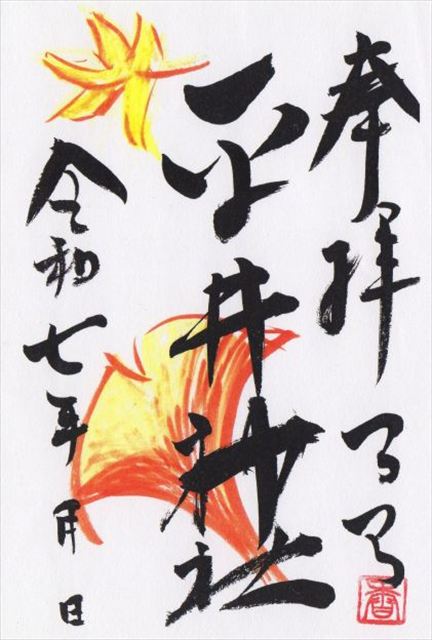 奉拝
香
平井神社
令和七年月日